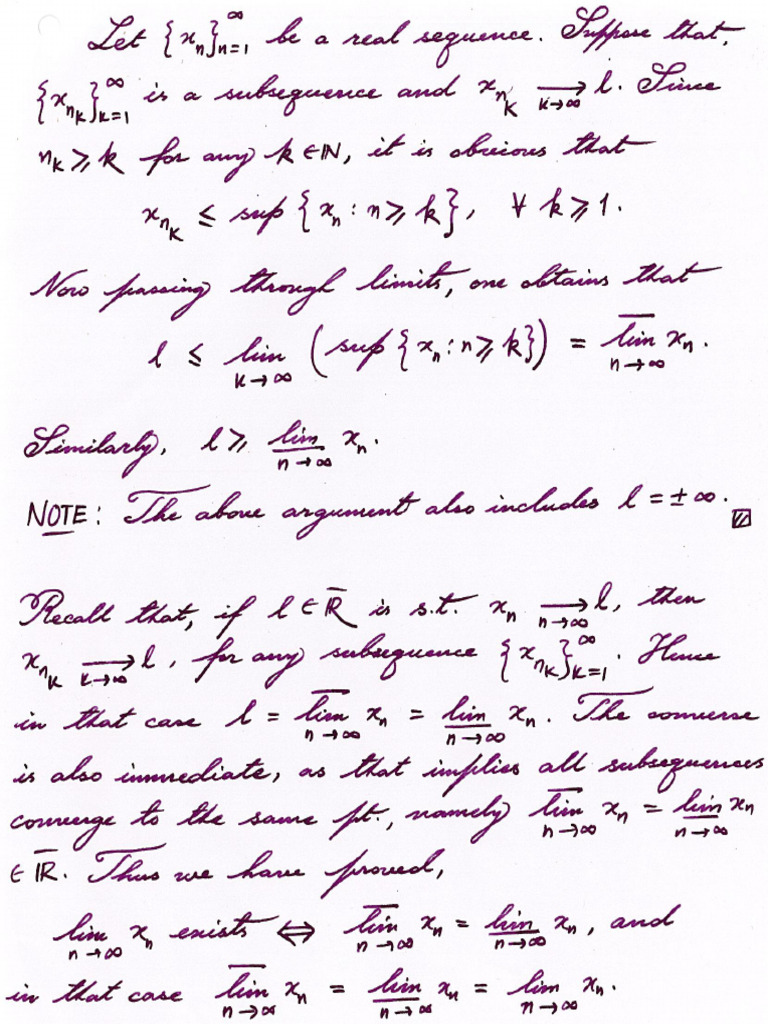 Let {xₙ}ₙ₌₁^∞ be a real sequence. Suppose that,
{x_{n_k}}_{k=1}^∞ is a subsequence and x_{n_k} ⟶_{k→∞} l. Since
n_k ≥ k for any k ∈ ℕ, it is obvious that
x_{n_k} ≤ sup {xₙ : n ≥ k}, ∀ k ≥ 1.
Now passing through limits, one obtains that
l ≤ lim_{k→∞} (sup {xₙ : n ≥ k}) = \overline{lim}_{n→∞} xₙ.
Similarly, l ≥ \underline{lim}_{n→∞} xₙ.
NOTE: The above argument also includes l = ±∞.
Recall that, if l ∈ \overline{ℝ} is s.t. xₙ ⟶_{n→∞} l, then
x_{n_k} ⟶_{k→∞} l, for any subsequence {x_{n_k}}_{k=1}^∞. Hence
in that case l = \overline{lim}_{n→∞} xₙ = \underline{lim}_{n→∞} xₙ. The converse
is also immediate, as that implies all subsequences
converge to the same pt., namely \overline{lim}_{n→∞} xₙ = \underline{lim}_{n→∞} xₙ
∈ \overline{ℝ}. Thus we have proved,
lim_{n→∞} xₙ exists ⇔ \overline{lim}_{n→∞} xₙ = \underline{lim}_{n→∞} xₙ, and
in that case \overline{lim}_{n→∞} xₙ = \underline{lim}_{n→∞} xₙ = lim_{n→∞} xₙ.